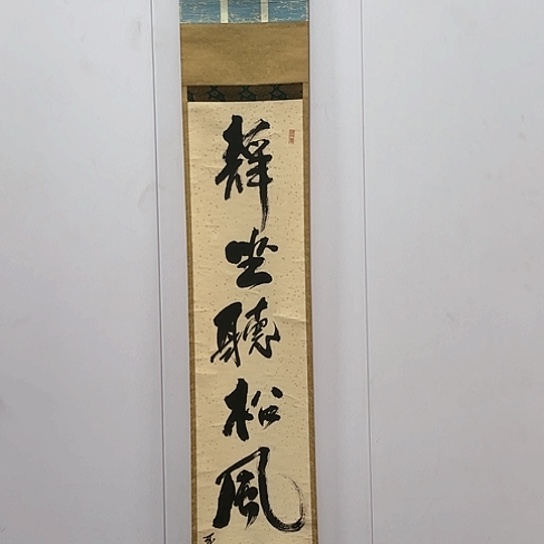 靜坐聽松風